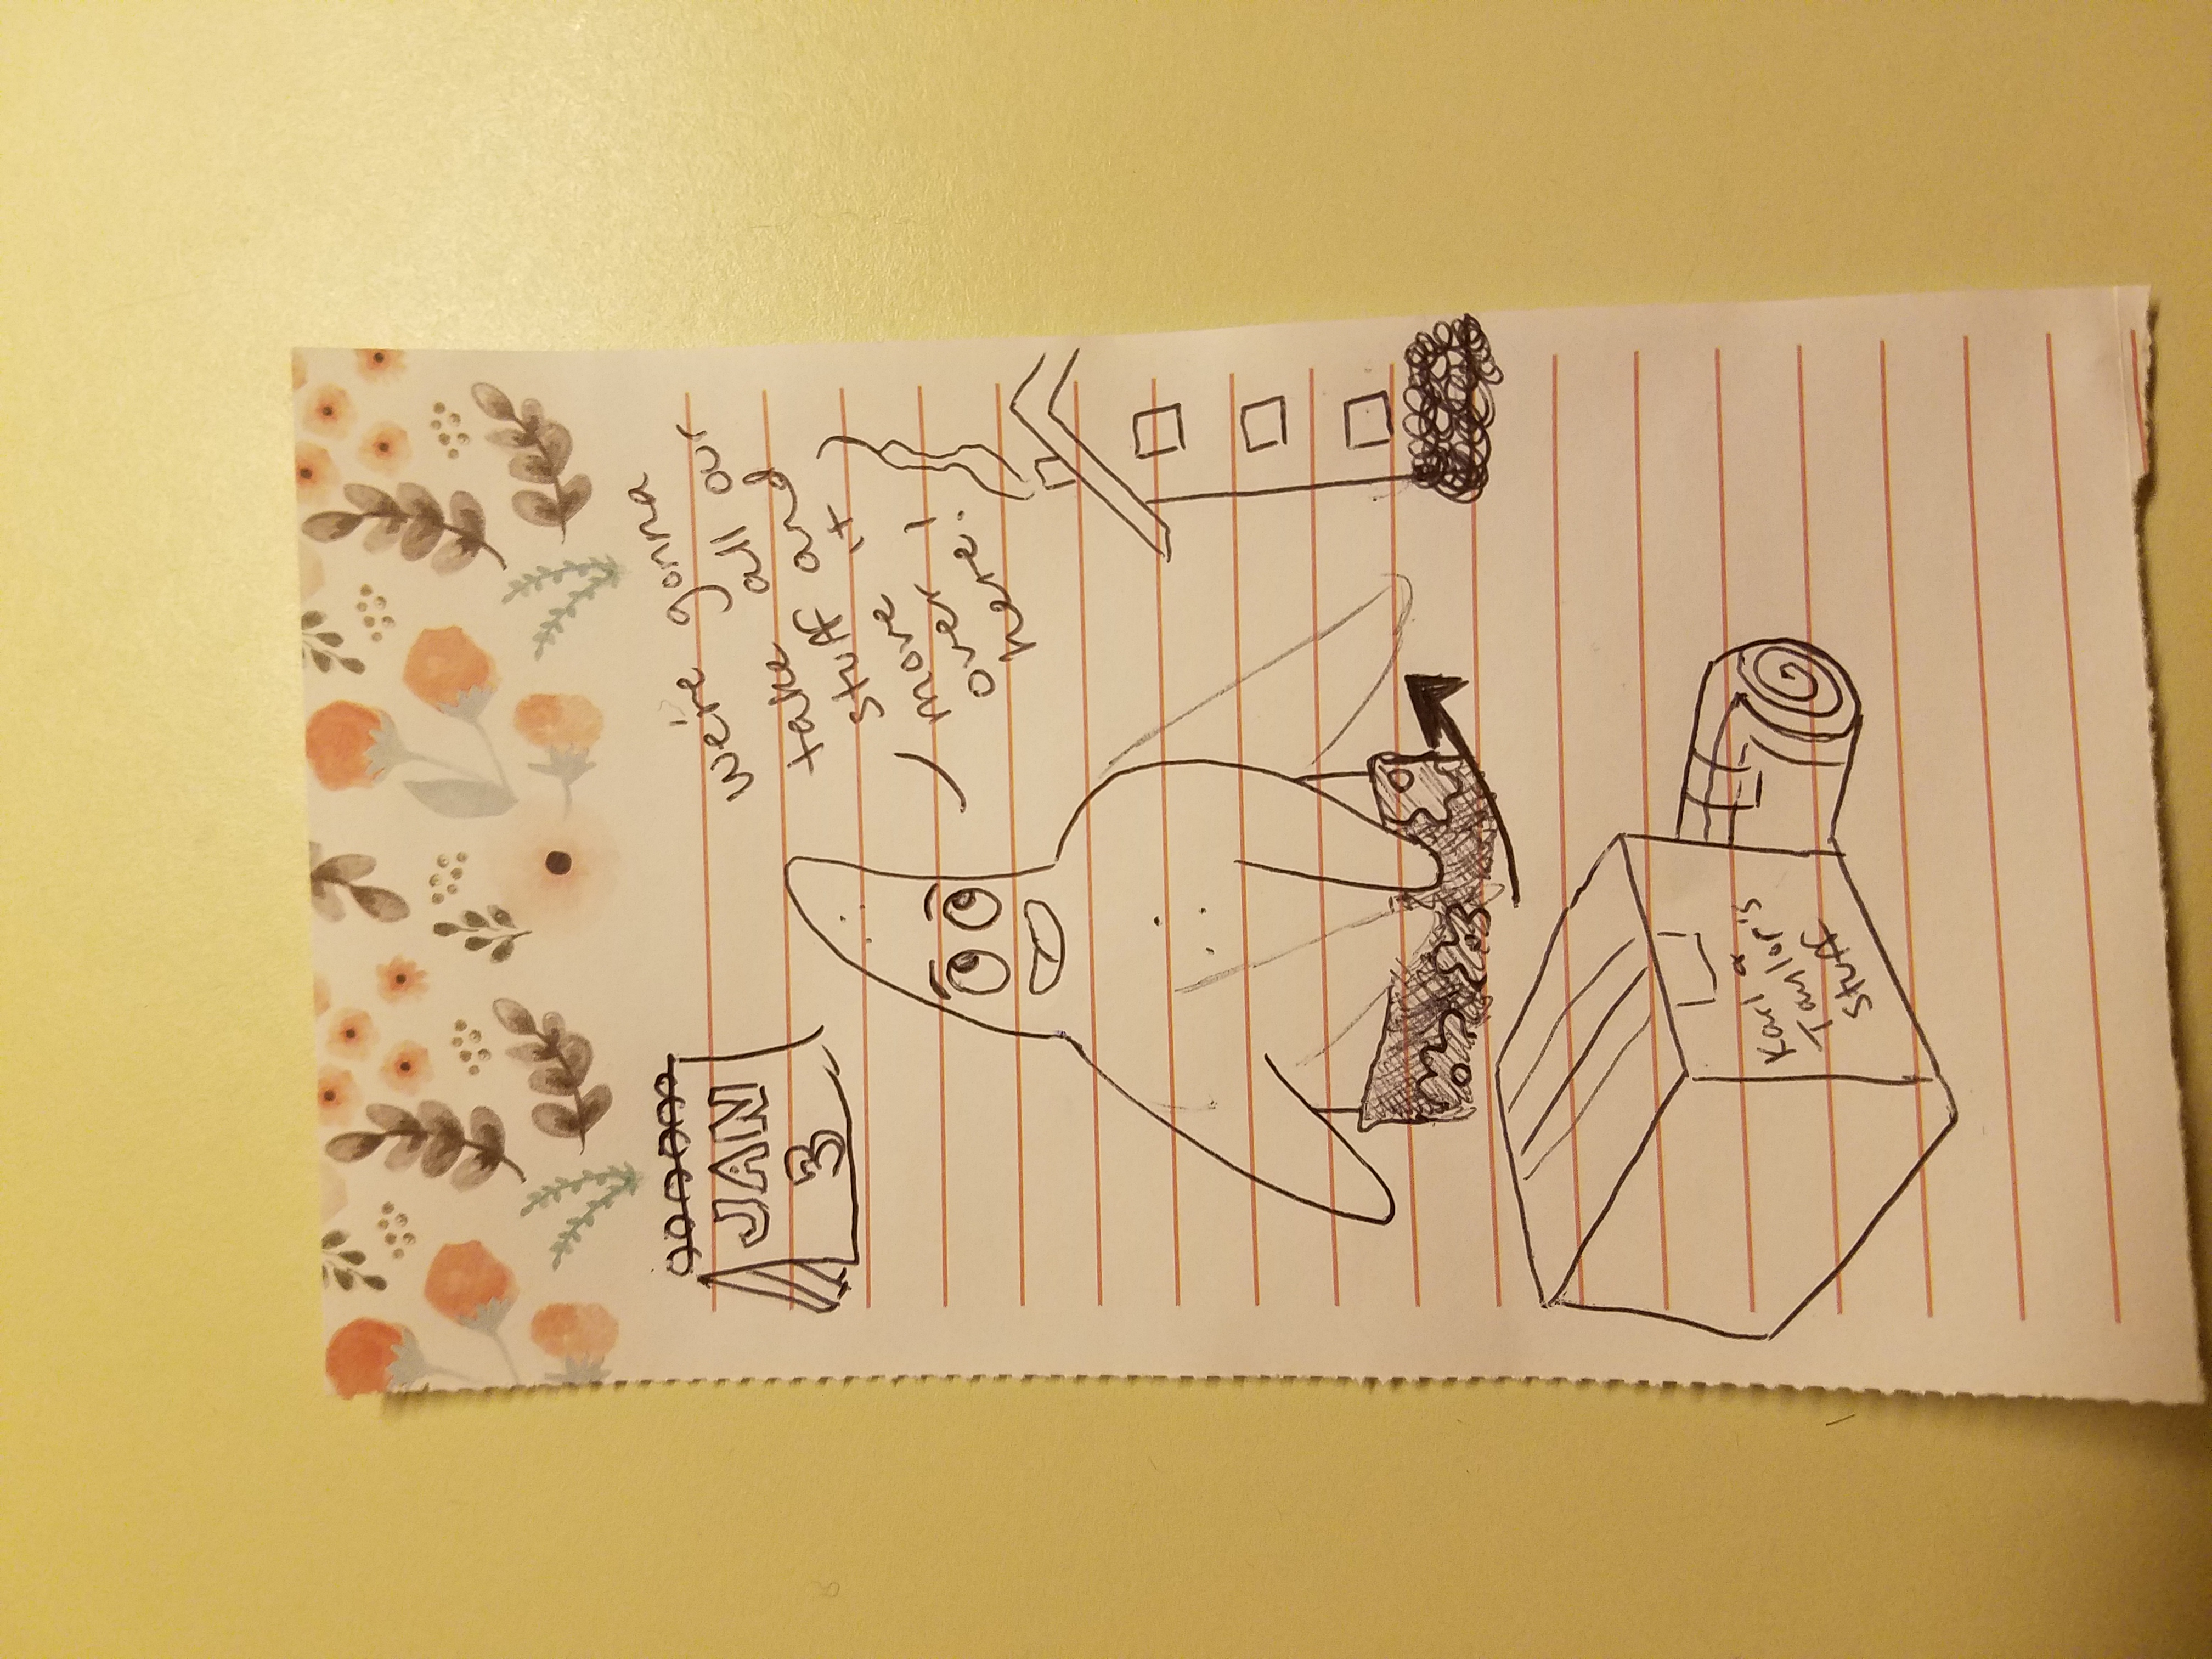 JAN
3
We're gonna
take all our
stuff and
move it
over
here!
Karl &
Taylor's
Stuff